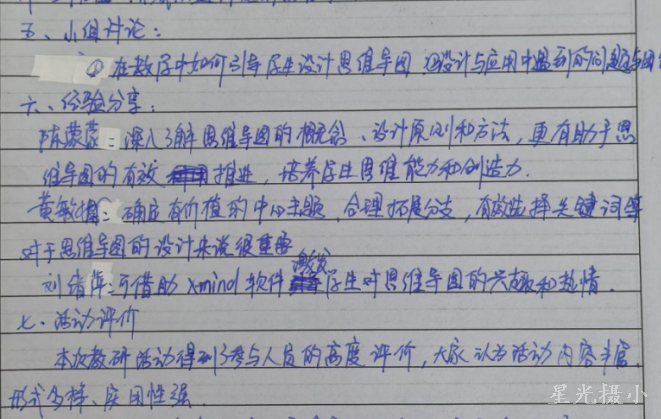 五、小组讨论：
①在教学中如何引导学生设计思维导图 ②设计与应用中遇到的问题与困
六、经验分享：
陈蒙蒙：深入了解思维导图的概念、设计原则和方法，更有助于思
维导图的有效推进，培养学生思维能力和创造力.
黄敏：确定有价值的中心主题，合理拓展分支，有效选择关键词等
对于思维导图的设计来说很重要
刘倩：可借助Xmind软件激发学生对思维导图的兴趣和热情.
七、活动评价
本次教研活动得到了参与人员的高度评价，大家认为活动内容丰富、
形式多样、实用性强.
星光摄小